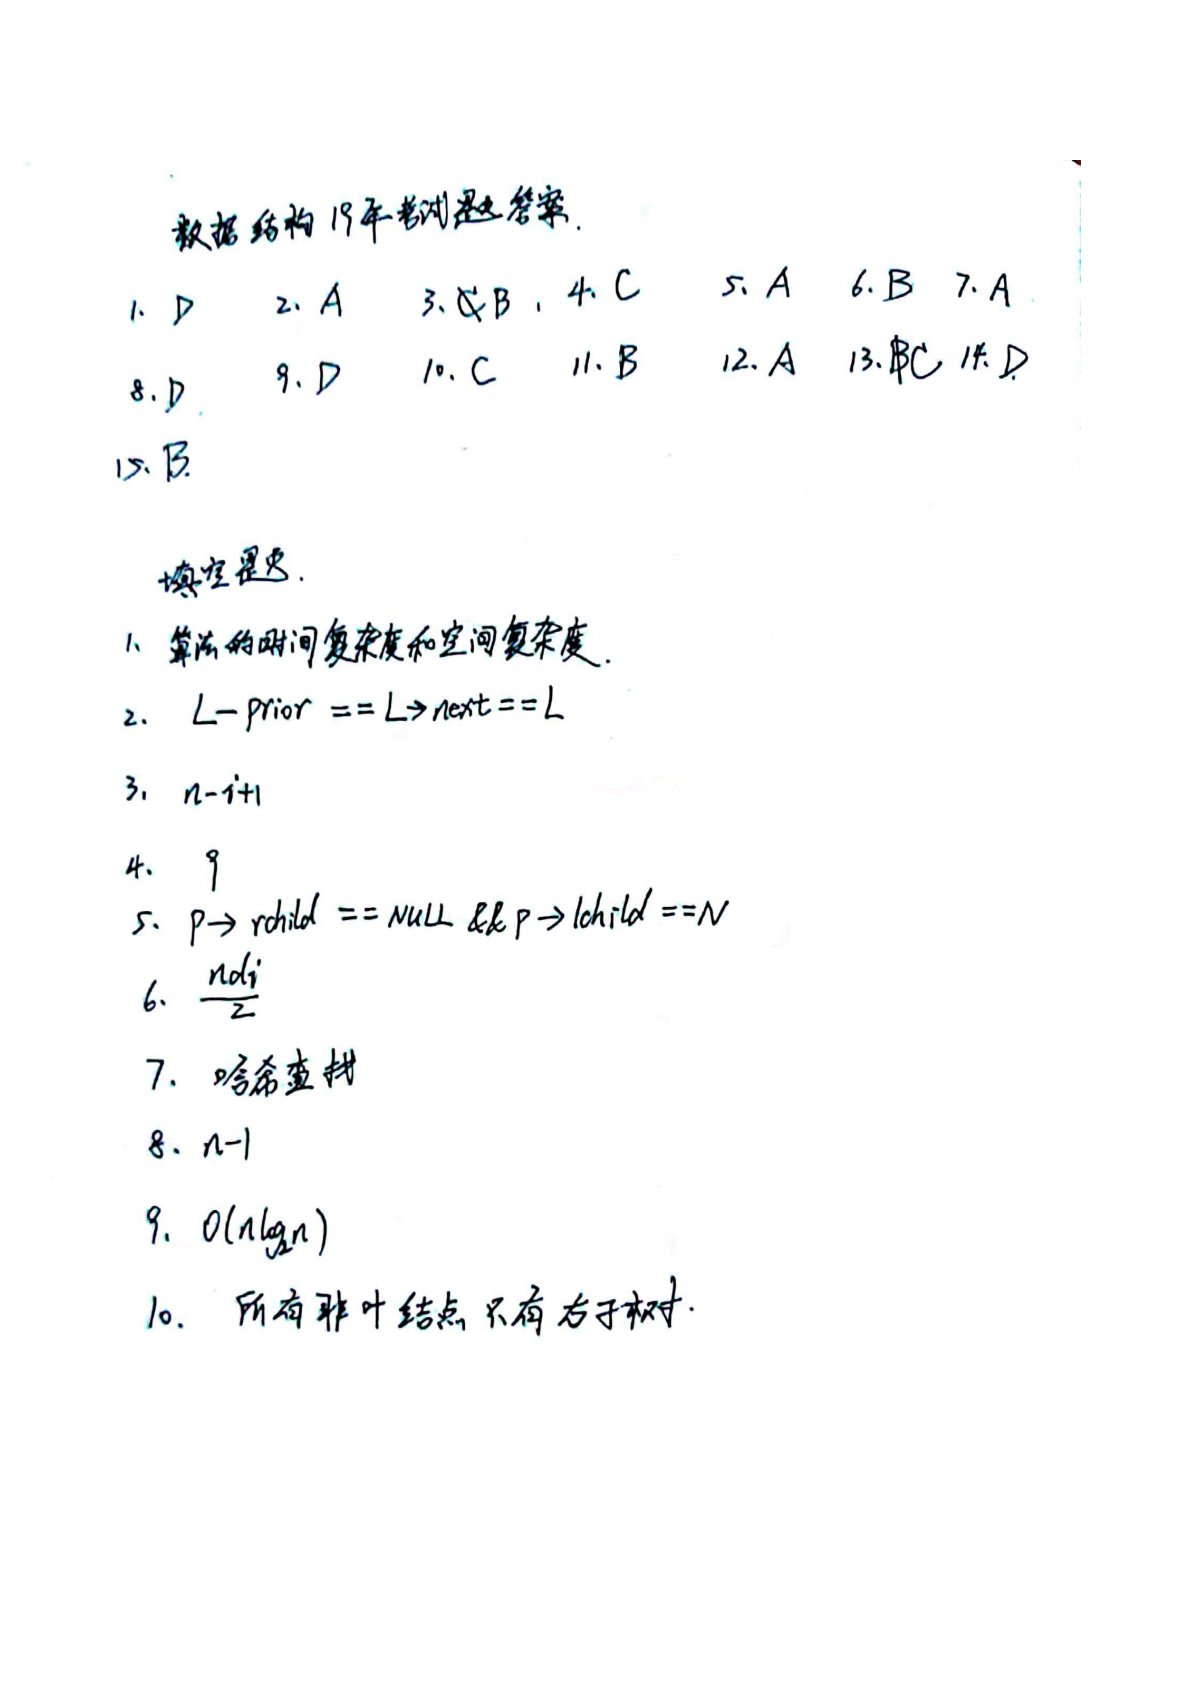 数据结构19年考试题答案.
1. D 2. A 3. B. 4. C 5. A 6. B 7. A
8. D 9. D 10. C 11. B 12. A 13. C 14. D
15. B.
填空题.
1. 算法的时间复杂度和空间复杂度.
2. L-prior == L→next==L
3. n-i+1
4. 9
5. p→rchild == NULL && p→lchild ==N
6. ndi/2
7. 哈希查找
8. n-1
9. O(nlog₂n)
10. 所有非叶结点只有右子树.